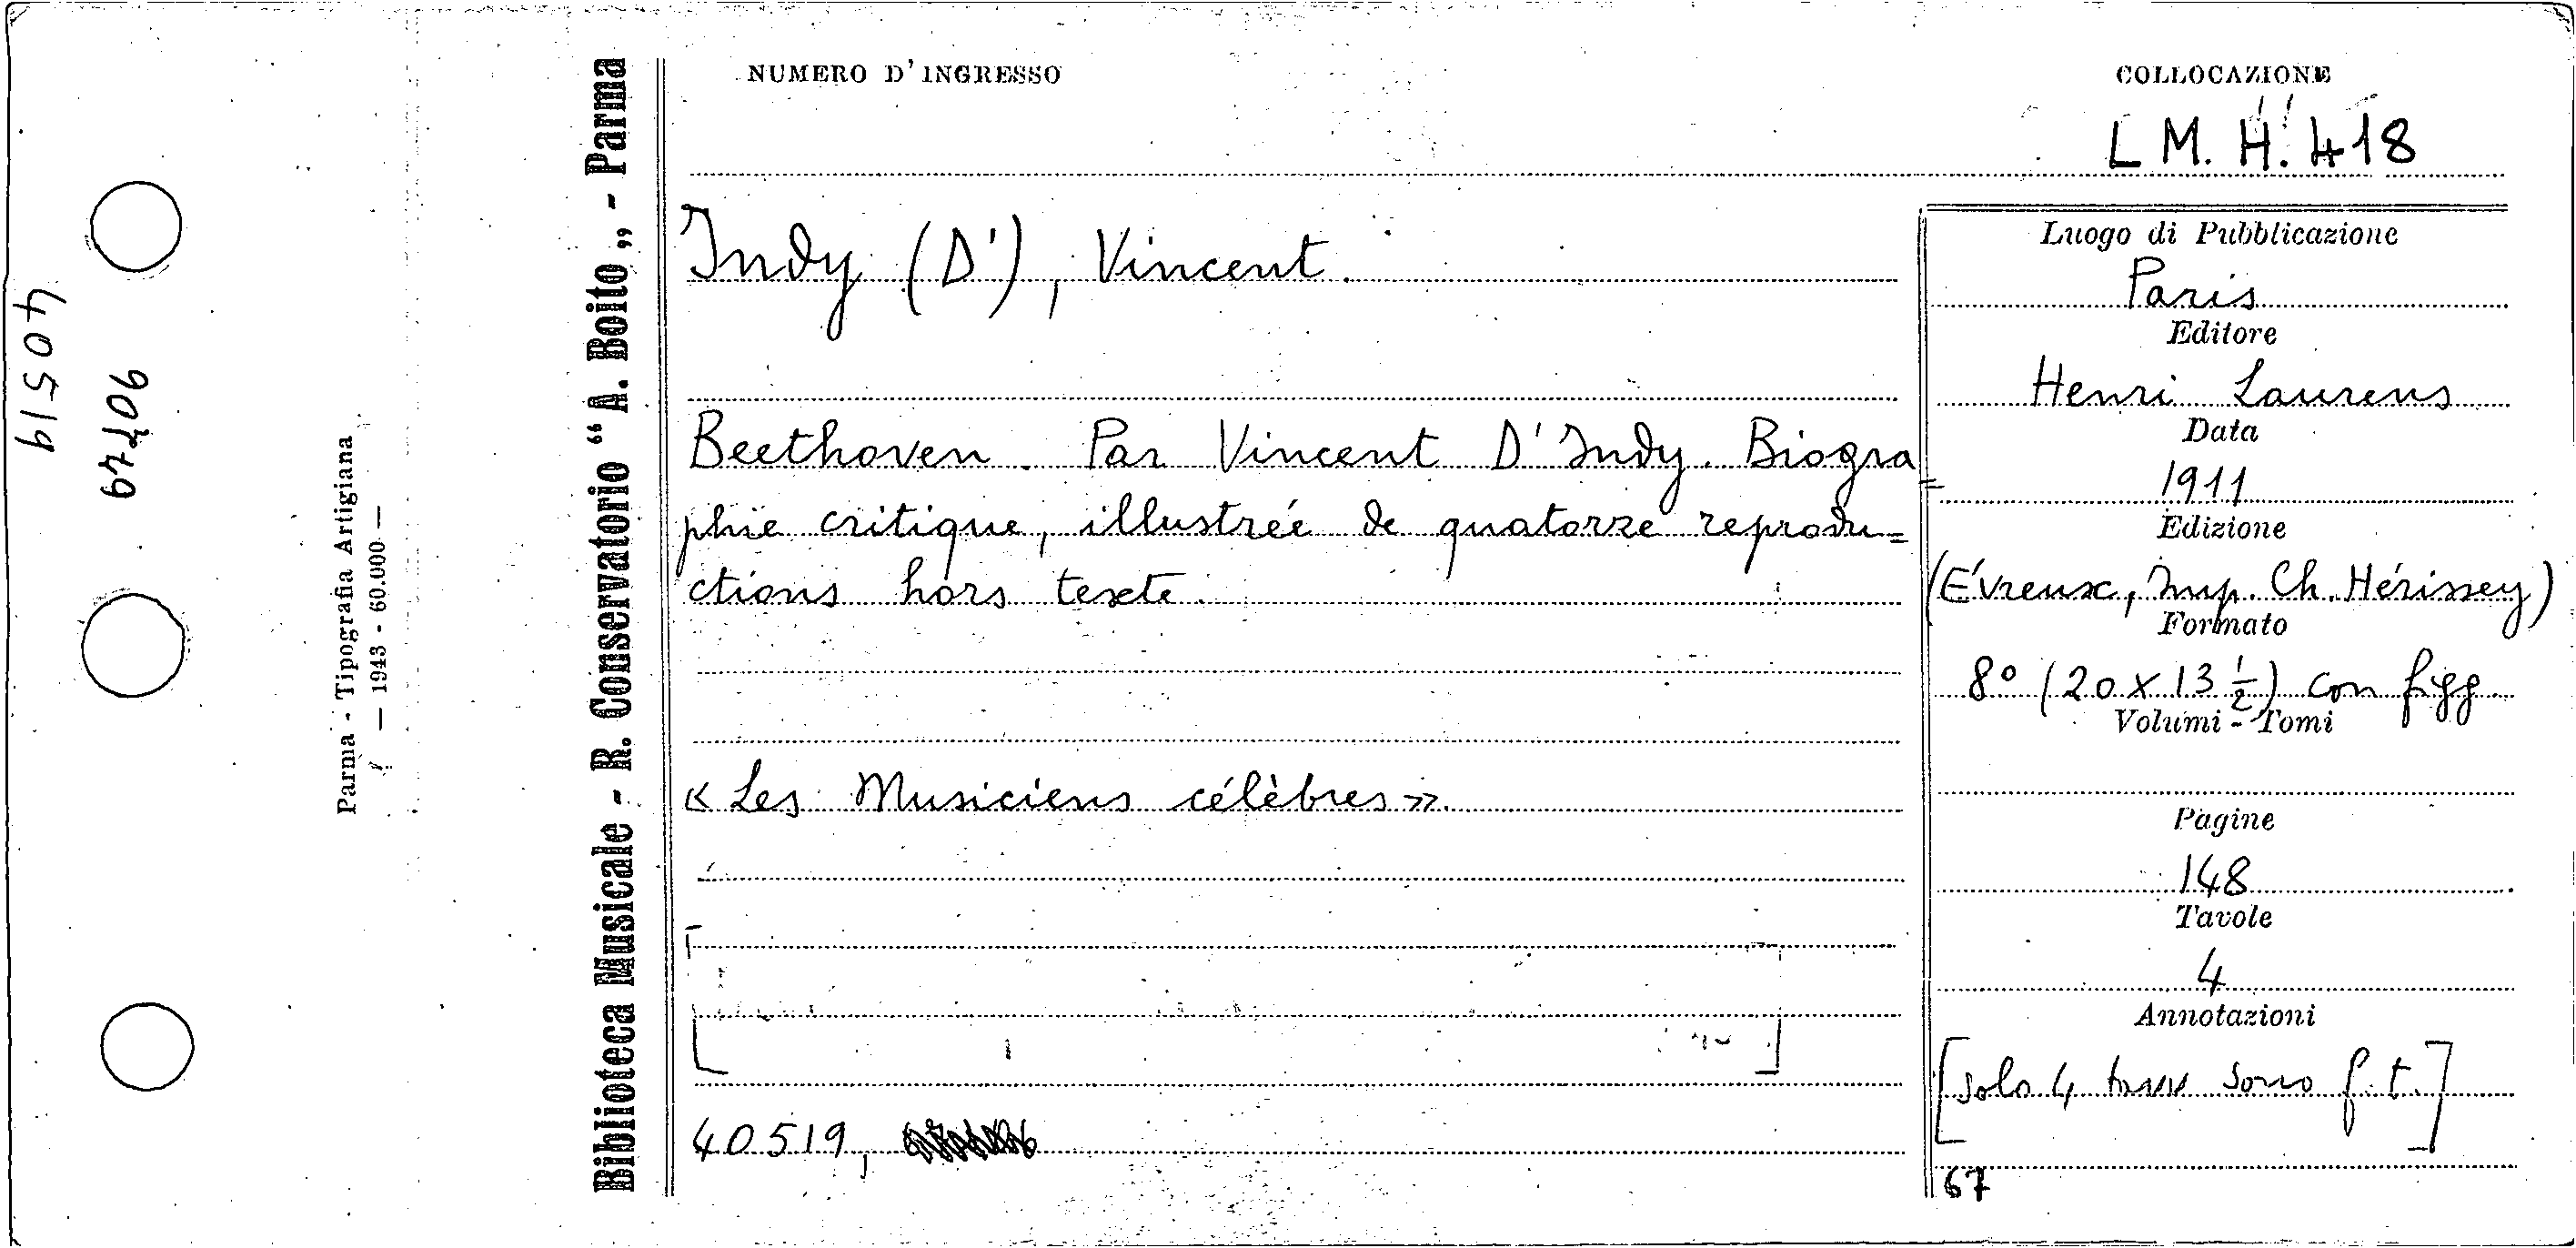 40519
90749
Parma - Tipografia Artigiana
— 1943 - 60.000 —
Biblioteca Musicale - R. Conservatorio “A. Boito„ - Parma
NUMERO D'INGRESSO
COLLOCAZIONE
L M. H. 418
Indy (D'), Vincent.
Beethoven. Par Vincent D'Indy. Biogra=
phie critique, illustrée de quatorze reprodu=
ctions hors texte.
« Les Musiciens célèbres ».
40519,
Luogo di Pubblicazione
Paris
Editore
Henri Laurens
Data
1911
Edizione
(Évreux, Imp. Ch. Hérissey)
Formato
8° (20 x 13 ½) con figg.
Volumi - Tomi
Pagine
148
Tavole
4
Annotazioni
[solo 4 tavv sono f.t.]
67